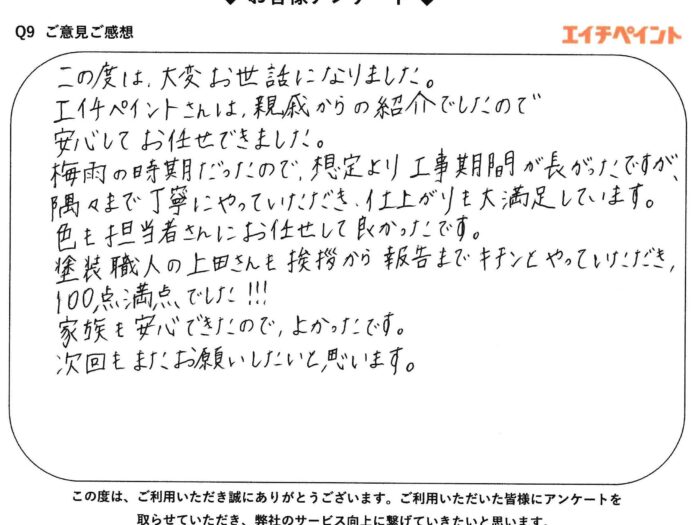 ◆ お客様アンケート ◆
Q9 ご意見ご感想
エイチペイント
この度は、大変お世話になりました。
エイチペイントさんは、親戚からの紹介でしたので
安心してお任せできました。
梅雨の時期だったので、想定より工事期間が長がったですが、
隅々まで丁寧にやっていただき、仕上がりも大満足しています。
色も担当者さんにお任せして良かったです。
塗装職人の上田さんも挨拶から報告までキチンとやっていただき、
100点満点でした!!!
家族も安心できたので、よかったです。
次回もまたお願いしたいと思います。
この度は、ご利用いただき誠にありがとうございます。ご利用いただいた皆様にアンケートを
取らせていただき、弊社のサービス向上に繋げていきたいと思います。